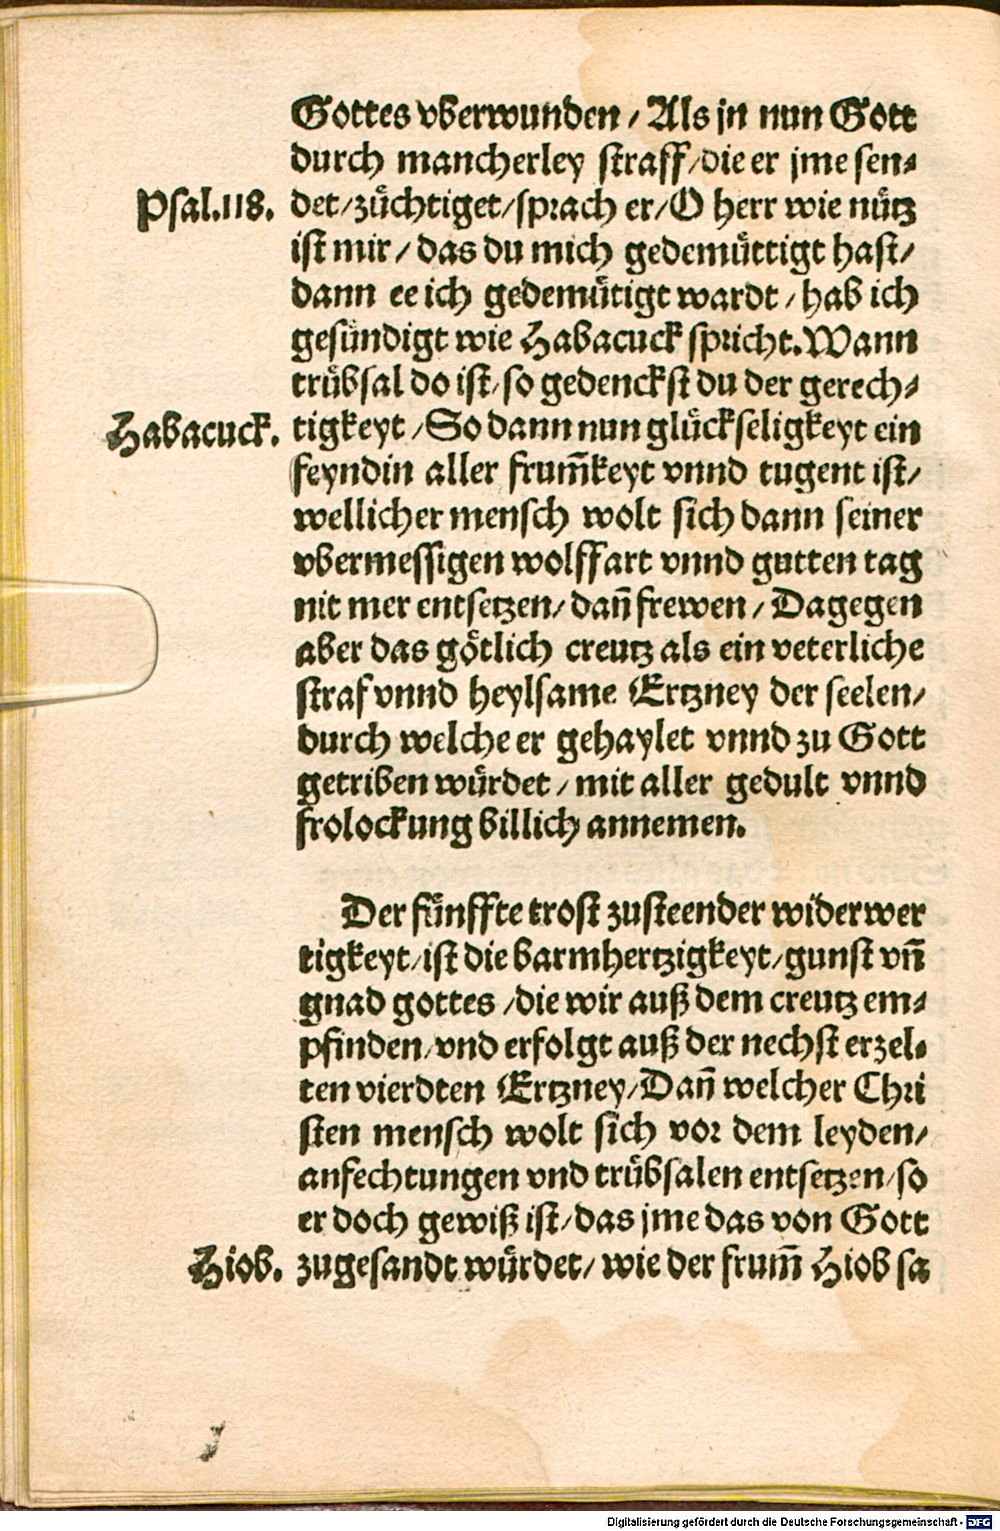 Gottes vberwunden / Als jn nun Gott
durch mancherley straff / die er jme sen⸗
Psal.118. det / zůchtiget / sprach er / O herr wie nütz
ist mir / das du mich gedemüttigt hast /
dann ee ich gedemütigt wardt / hab ich
gesündigt wie Habacuck spricht. Wann
trübsal do ist / so gedenckst du der gerech⸗
Habacuck. tigkeyt / So dann nun glückseligkeyt ein
feyndin aller frum̃keyt vnnd tugent ist /
wellicher mensch wolt sich dann seiner
vbermessigen wolffart vnnd gutten tag
nit mer entsetzen / dañ frewen / Dagegen
aber das götlich creutz als ein veterliche
straf vnnd heylsame Ertzney der seelen /
durch welche er gehaylet vnnd zu Gott
getriben würdet / mit aller gedult vnnd
frolockung billich annemen.
Der fünffte trost zusteender widerwer
tigkeyt / ist die barmhertzigkeyt / gunst vñ
gnad gottes / die wir auß dem creutz em⸗
pfinden / vnd erfolgt auß der nechst erzel⸗
ten vierdten Ertzney / Dañ welcher Chri
sten mensch wolt sich vor dem leyden /
anfechtungen vnd trübsalen entsetzen / so
er doch gewiß ist / das jme das von Gott
Hiob. zugesandt würdet / wie der frum̃ Hiob sa
Digitalisierung gefördert durch die Deutsche Forschungsgemeinschaft - DFG